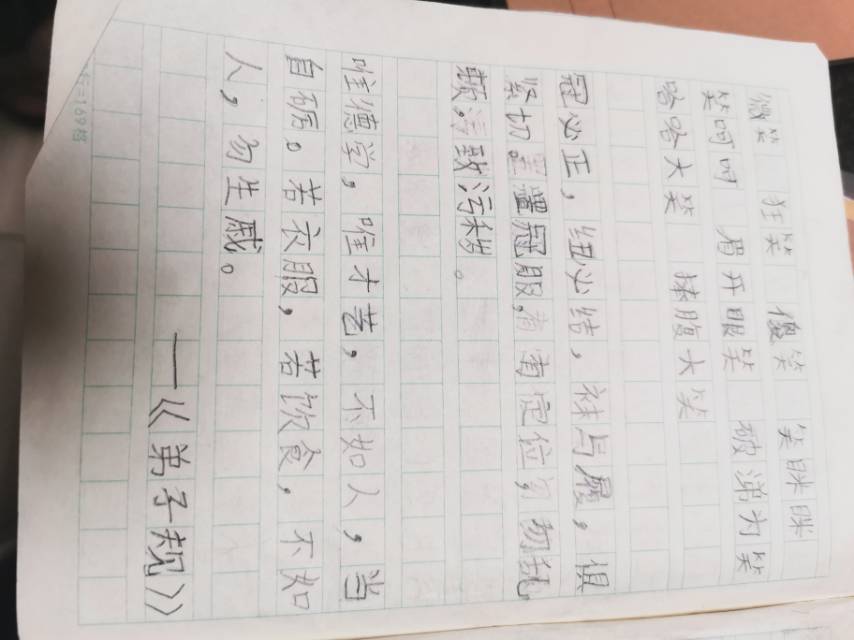 微笑 狂笑 傻笑 笑眯眯
笑呵呵 眉开眼笑 破涕为笑
哈哈大笑 捧腹大笑
冠必正，纽必结，袜与履，俱
紧切。置冠服，有定位，勿乱
顿，致污秽。
唯德学，唯才艺，不如人，当
自砺。若衣服，若饮食，不如
人，勿生戚。
——《弟子规》